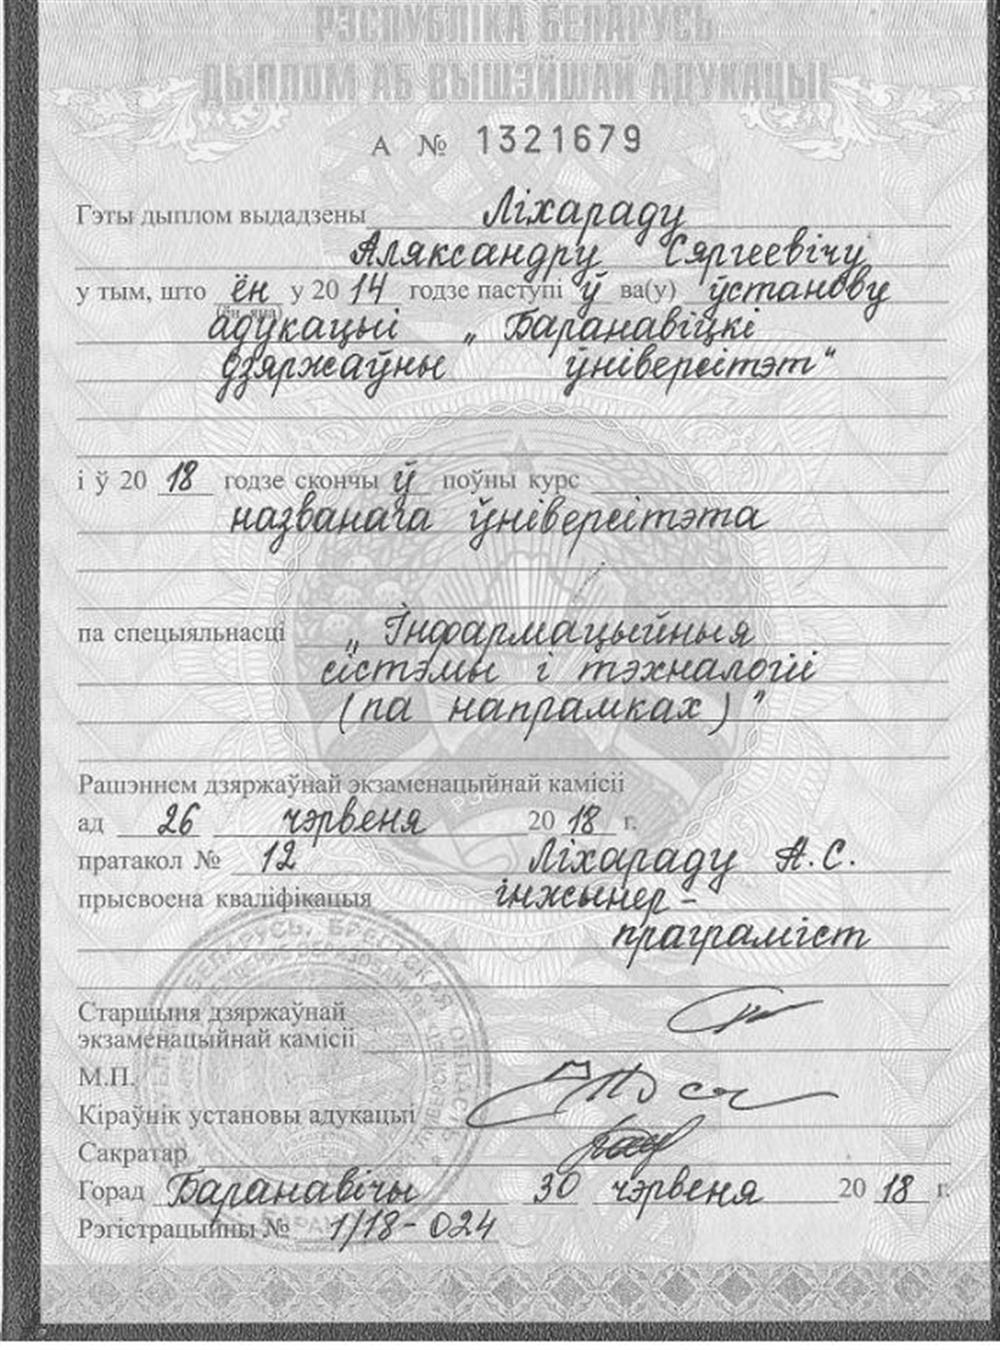 РЭСПУБЛІКА БЕЛАРУСЬ
ДЫПЛОМ АБ ВЫШЭЙШАЙ АДУКАЦЫІ
А № 1321679
Гэты дыплом выдадзены Ліхараду
Аляксандру Сяргеевічу
у тым, што ён у 2014 годзе паступіў ва(у) ўстанову
(ён, яна)
адукацыі „Баранавіцкі
дзяржаўны ўніверсітэт“
і ў 2018 годзе скончыў поўны курс
названага ўніверсітэта
па спецыяльнасці „Інфармацыйныя
сістэмы і тэхналогіі
(па напрамках)”
Рашэннем дзяржаўнай экзаменацыйнай камісіі
ад 26 чэрвеня 2018 г.
пратакол № 12 Ліхараду А.С.
прысвоена кваліфікацыя інжынер-
праграміст
Старшыня дзяржаўнай
экзаменацыйнай камісіі
М.П.
Кіраўнік установы адукацыі
Сакратар
Горад Баранавічы 30 чэрвеня 2018 г.
Рэгістрацыйны № 1/18-024
БЕЛАРУСЬ, БРЕСТСКАЯ ОБЛАСТЬ